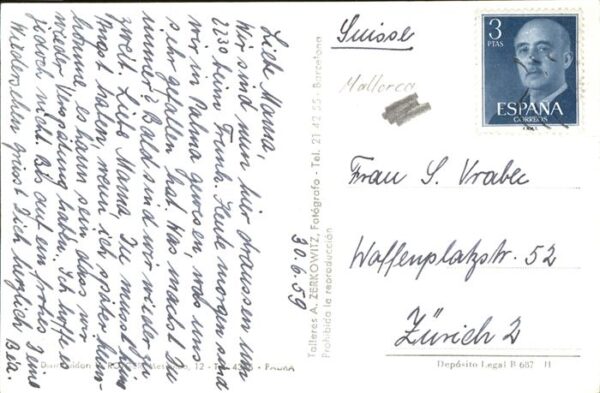 Liebe Mama,
wir sind nun hier draussen um
2230 beim Trunk. Heute morgen sind
wir in Palma gewesen, was uns
sehr gefallen hat. Was machst Du
immer? Bald sind wir wieder zu
zweit. Liebe Mama, Du musst keine
Angst haben, wenn ich später heim-
komme, es kann sein, dass wir
wieder Verspätung haben. Ich hoffe es
jedoch nicht. Bis auf ein frohes
Wiedersehen grüsst Dich herzlich Deine
Bea.
30.6.59
Talleres A. ZERKOWITZ, Fotógrafo - Tel. 21 42 55 - Barcelona
Prohibida la reproducción
Suisse
Mallorca
3
PTAS
ESPAÑA
CORREOS
Frau S. Vrabec
Waffenplatzstr. 52
Zürich 2
12 - PALMA
Depósito Legal B 687 II